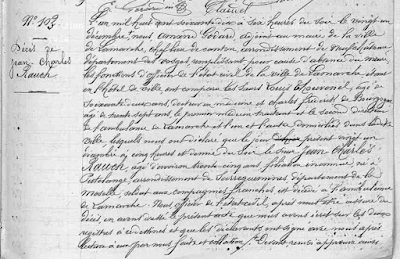 N° 102
Décès de
Jean Charles
Rauch
L'an mil huit cent soixante dix à six heures du soir le vingt un
décembre, nous Godard adjoint au maire de la ville
de Lamarche, chef lieu de canton arrondissement de Neufchateau
département des Vosges remplissant pour cause d'absence du maire
les fonctions d'officier de l'état civil de la ville de Lamarche étant en
l'hôtel de ville, ont comparu les sieurs Louis Chouvenel, âgé de
soixante deux ans, docteur en médecine et Charles
âgé de trente sept ans, le premier médecin traitant et le second
de l'ambulance de Lamarche et l'un et l'autre domiciliés dans la
ville, lesquels nous ont déclaré que le jour présent vingt un
décembre à cinq heures et demie du soir, le sieur Jean Charles
Rauch âgé d'environ trente cinq ans, né à
Puttelange, arrondissement de Sarreguemines département de la
Moselle, soldat aux compagnies franches est décédé à l'ambulance
de Lamarche. Nous, officier de l'état civil, après nous être assuré du
décès, en avons dressé le présent acte que nous avons inscrit sur les deux
registres à ce destinés et que les déclarants ont signé avec nous après
lecture à eux par nous faite et